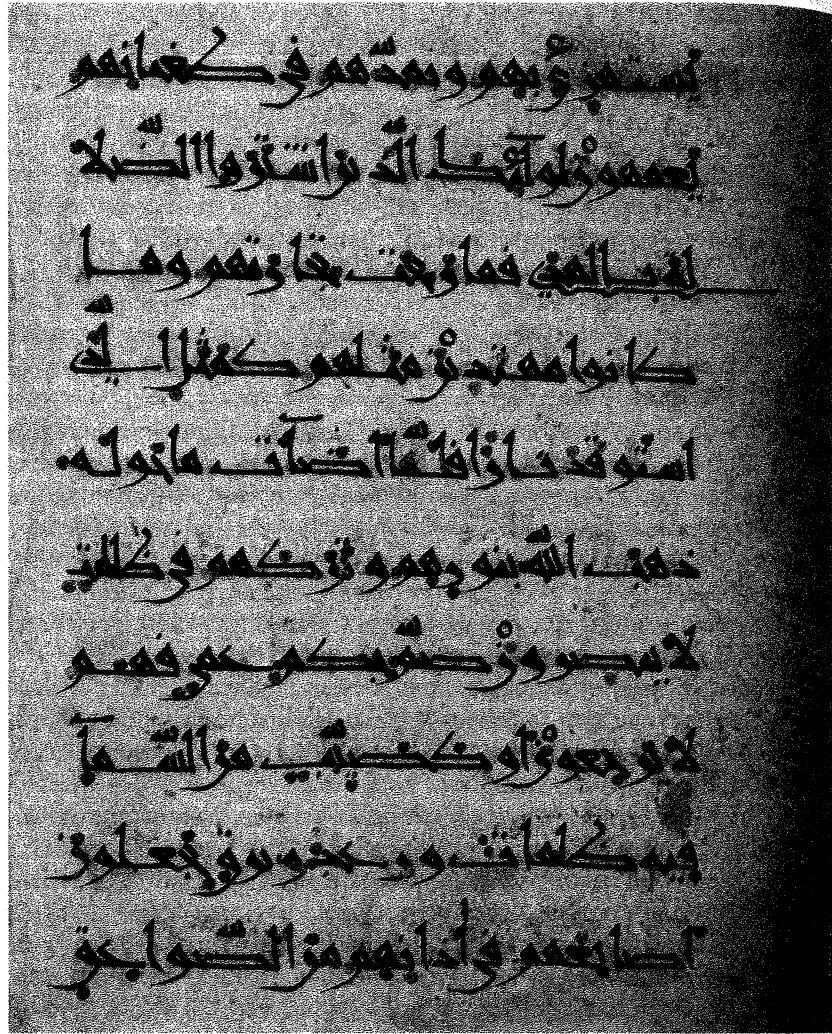 يستهزئ بهم ويمدّهم في طغيانهم
يعمهون أولئك الّذين اشتروا الضّلا
لة بالهدى فما ربحت تجارتهم وما
كانوا مهتدين مثلهم كمثل الّذي
استوقد نارا فلمّا اضآت ما حوله
ذهب اللّه بنورهم وتركهم في ظلمت
لا يبصرون صمّ بكم عمي فهم
لا يرجعون أو كصيّب من السّمآ
فيه ظلمات ورعد وبرق يجعلون
اصابعهم في أذانهم من الصّواعق